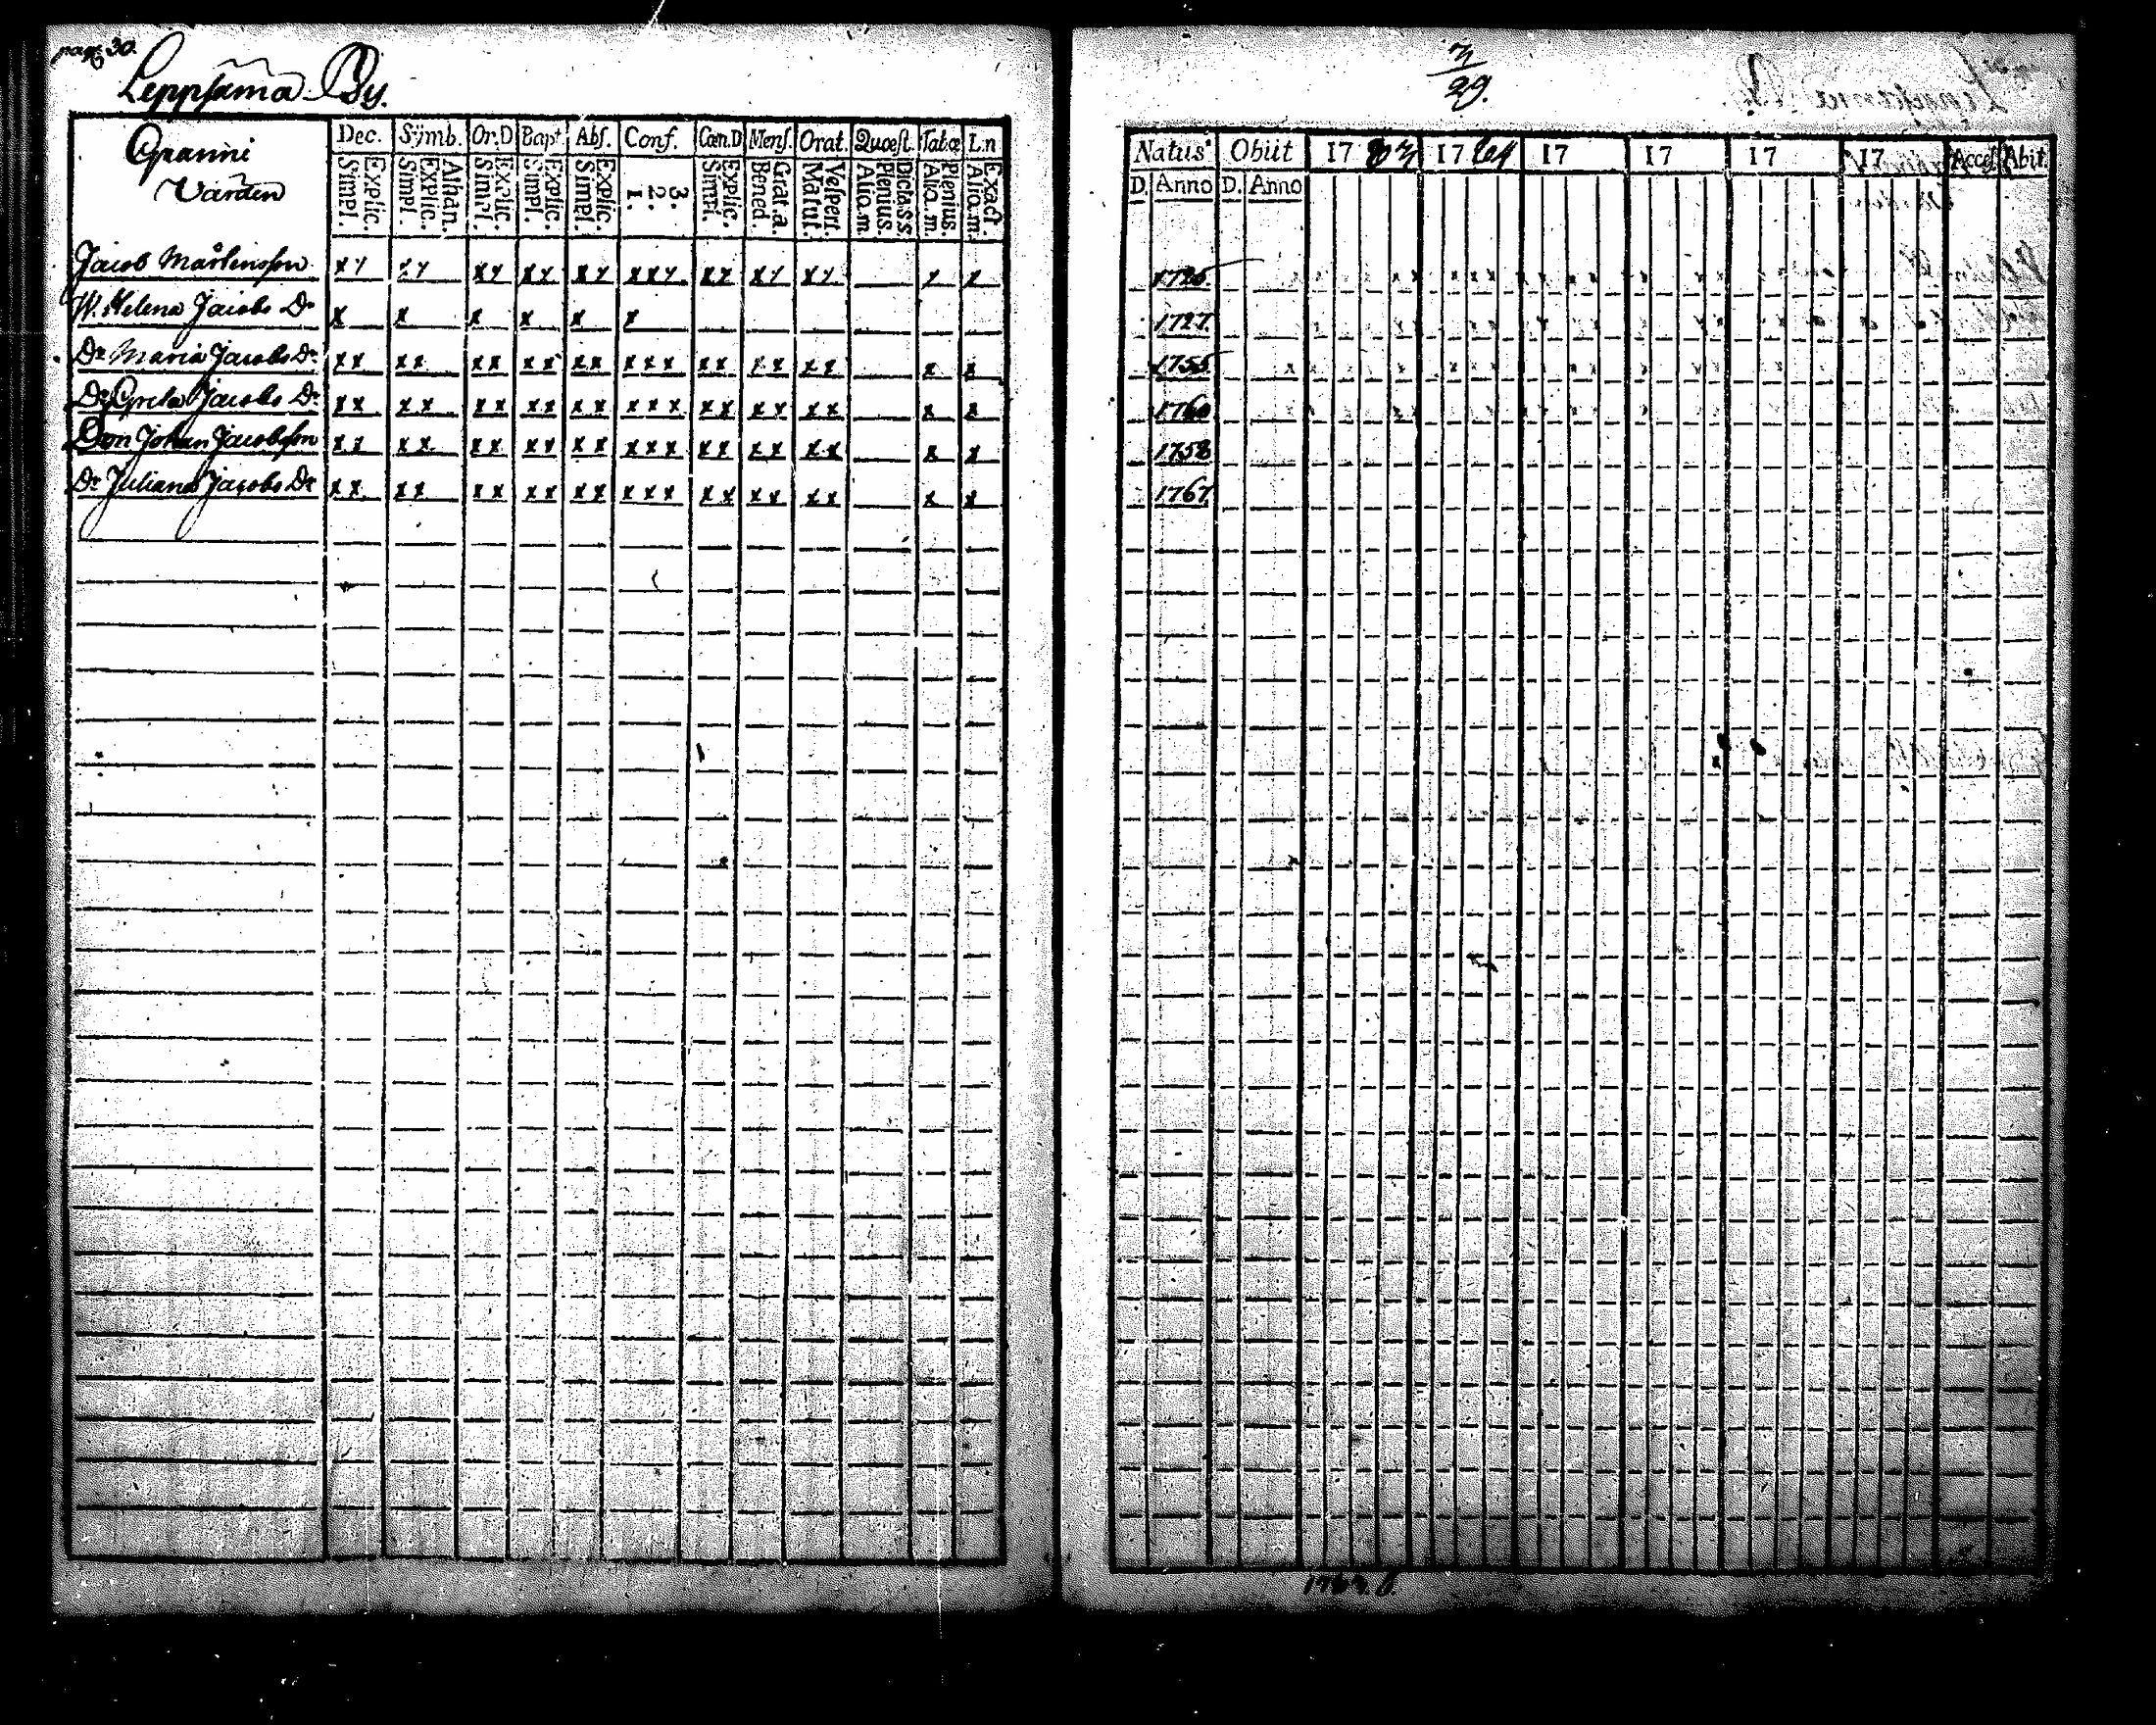 pag. 30.
Leppsama By.
Granni
Värden
Dec. Symb. Or.D Bapt Abs. Conf. Cœn.D Mens. Orat. Quæst. Tab.œ L.n
Explic. Simpl. Athan. Explic. Simpl. Explic. Simpl. Explic. Simpl. Explic. Simpl. 3. 2. 1. Explic. Simpl. Grat.a. Bened. Vespert. Matut. Dicta.s.s. Plenius. Aliq.m. Plenius. Aliq.m. Exact. Aliq.m.
Jacob Mårtensson x x x x x x x x x x x x x x x x x x x x x
W. Helena Jacobs Dr x x x x x x
Dr Maria Jacobs Dr x x x x x x x x x x x x x x x x x x x x x
Dr Greta Jacobs Dr x x x x x x x x x x x x x x x x x x x x x
Son Johan Jacobsson x x x x x x x x x x x x x x x x x x x x x
Dr Juliana Jacobs Dr x x x x x x x x x x x x x x x x x x x x x
29.
Natus Obiit 17 17 64 17 17 17 17 Acces. Abit.
D. Anno D. Anno
1725.
1727.
1755
1760
1758
1767